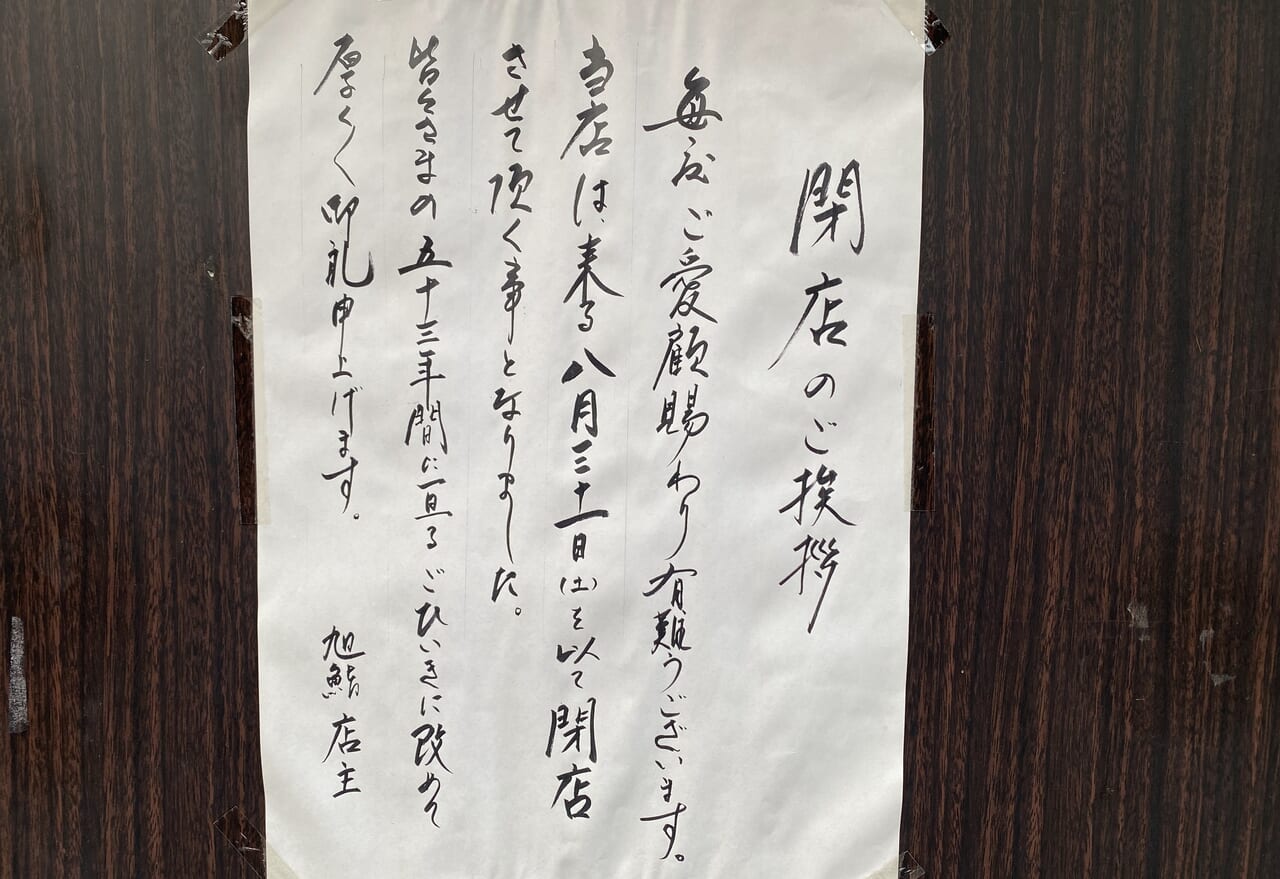 閉店のご挨拶
毎度ご愛顧賜わり有難うございます。
当店は、来る八月三十一日(土)を以て閉店
させて頂く事となりました。
皆々さまの五十三年間に亘るごひいきに改めて
厚く〱御礼申上げます。
旭鮨店主